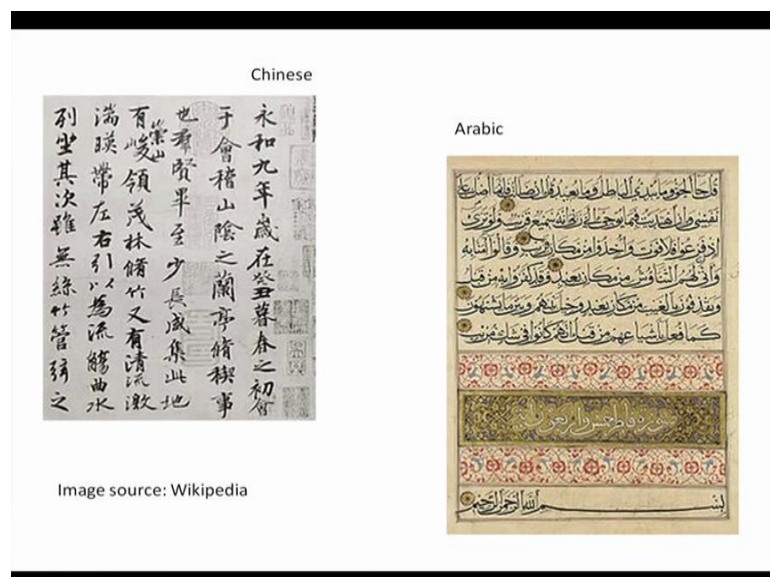 Chinese
永和九年歲在癸丑暮春之初會
于會稽山陰之蘭亭脩稧事
也羣賢畢至少長咸集此地
有崇山峻領茂林脩竹又有清流激
湍暎帶左右引以為流觴曲水
列坐其次雖無絲竹管弦之
Image source: Wikipedia
Arabic
قل جاء الحق وما يبدئ الباطل وما يعيد قل ان ضللت فانما اضل على
نفسي وان اهتديت فبما يوحي الي ربي انه سميع قريب ولو ترى
اذ فزعوا فلا فوت واخذوا من مكان قريب وقالوا امنا به
وانى لهم التناوش من مكان بعيد وقد كفروا به من قبل
ويقذفون بالغيب من مكان بعيد وحيل بينهم وبين ما يشتهون
كما فعل باشياعهم من قبل انهم كانوا في شك مريب
سورة فاطر خمس واربعون اية
بسم الله الرحمن الرحيم